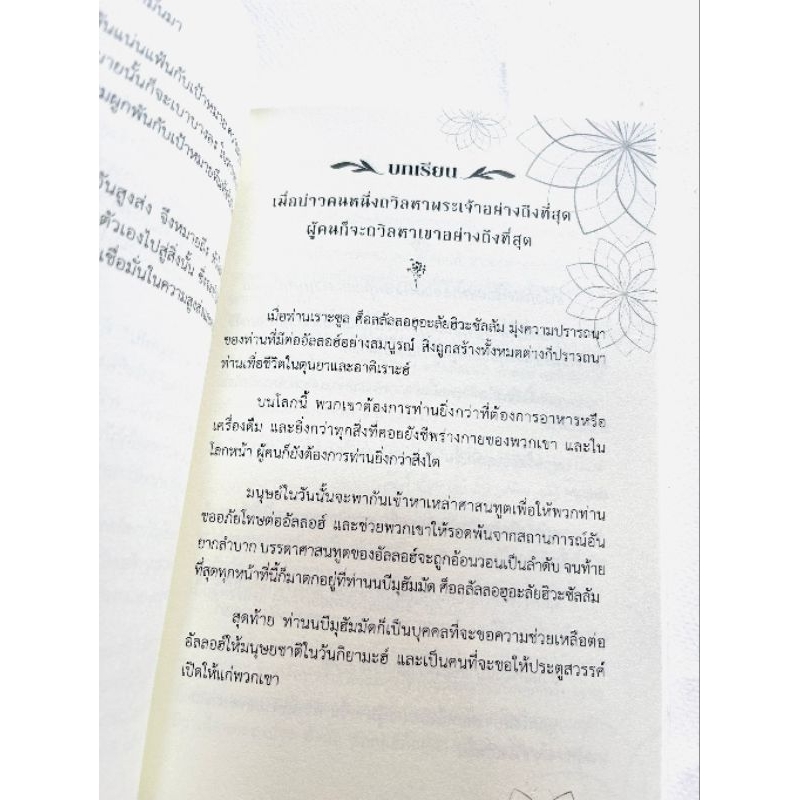 ันแน่นแฟ้นกับเป้าหมาย
มายนั้นก็จะเบาบางลง
มผูกพันกับเป้าหมาย
ันสูงส่ง จึงหมายถึง
ตัวเองไปสู่สิ่งนั้น
เชื่อมั่นในความสูงส่ง
บทเรียน
เมื่อบ่าวคนหนึ่งถวิลหาพระเจ้าอย่างถึงที่สุด
ผู้คนก็จะถวิลหาเขาอย่างถึงที่สุด
เมื่อท่านเราะซูล ศ็อลลัลลอฮุอะลัยฮิวะซัลลัม มุ่งความปรารถนา
ของท่านที่มีต่ออัลลอฮ์อย่างสมบูรณ์ สิ่งถูกสร้างทั้งหมดต่างก็ปรารถนา
ท่านเพื่อชีวิตในดุนยาและอาคิเราะฮ์
บนโลกนี้ พวกเขาต้องการท่านยิ่งกว่าที่ต้องการอาหารหรือ
เครื่องดื่ม และยิ่งกว่าทุกสิ่งที่คอยยังชีพร่างกายของพวกเขา และใน
โลกหน้า ผู้คนก็ยังต้องการท่านยิ่งกว่าสิ่งใด
มนุษย์ในวันนั้นจะพากันเข้าหาเหล่าศาสนทูตเพื่อให้พวกท่าน
ขออภัยโทษต่ออัลลอฮ์ และช่วยพวกเขาให้รอดพ้นจากสถานการณ์อัน
ยากลำบาก บรรดาศาสนทูตของอัลลอฮ์จะถูกอ้อนวอนเป็นลำดับ จนท้าย
ที่สุดทุกหน้าที่นี้ก็มาตกอยู่ที่ท่านนบีมุฮัมมัด ศ็อลลัลลอฮุอะลัยฮิวะซัลลัม
สุดท้าย ท่านนบีมุฮัมมัดก็เป็นบุคคลที่จะขอความช่วยเหลือต่อ
อัลลอฮ์ให้มนุษยชาติในวันกิยามะฮ์ และเป็นคนที่จะขอให้ประตูสวรรค์
เปิดให้แก่พวกเขา